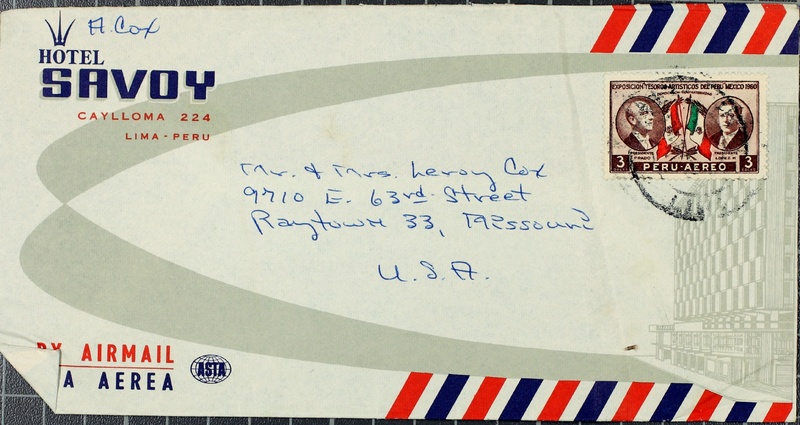 A. Cox
HOTEL
SAVOY
CAYLLOMA 224
LIMA - PERU
EXPOSICION TESOROS ARTISTICOS DEL PERU MEXICO 1960
PRESIDENTE
PRADO
PRESIDENTE
LOPEZ M.
3
PERU-AEREO
3
Mr. & Mrs. Leroy Cox
9710 E. 63rd Street
Raytown 33, Missouri
U.S.A.
BY AIRMAIL
A AEREA
ASTA